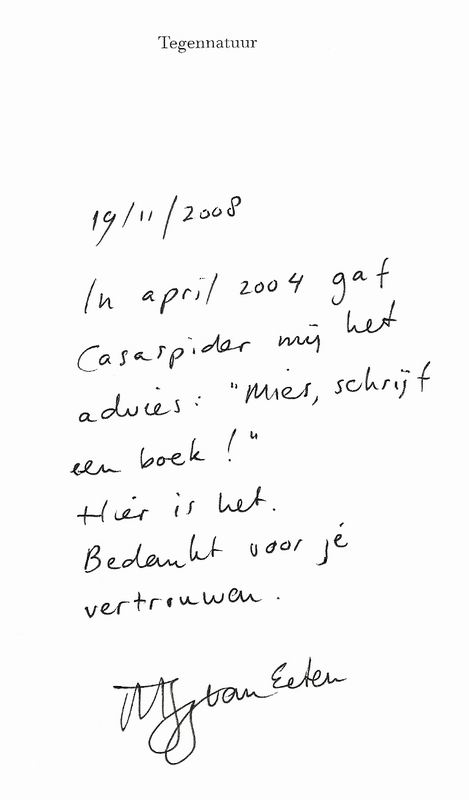 Tegennatuur
19/11/2008
In april 2004 gaf
Casaspider mij het
advies: "Mies, schrijf
een boek!"
Hier is het.
Bedankt voor je
vertrouwen.
van Eeten